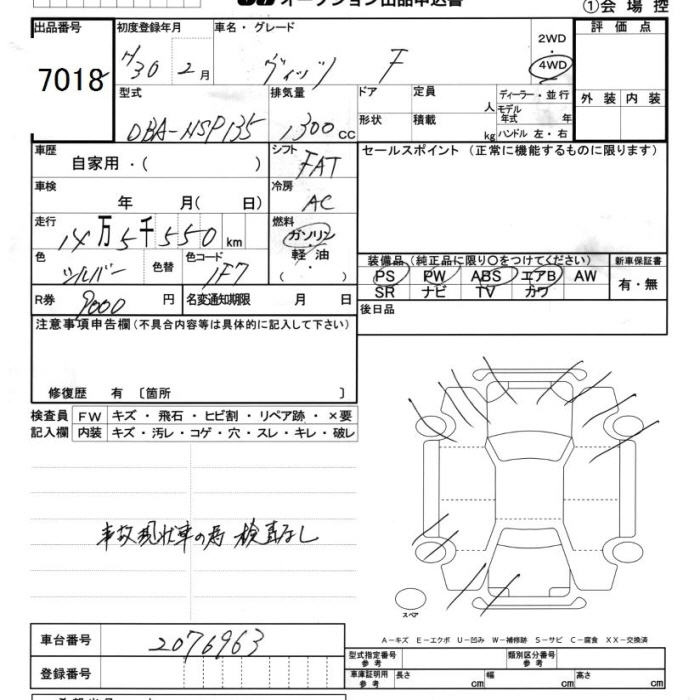 オークション出品申込書
①会場控
出品番号
7018
初度登録年月
H30 2月
車名・グレード
ヴィッツ F
2WD
・
4WD
評価点
外装 内装
型式
DBA-NSP135
排気量
1300cc
ドア
形状
定員 人
積載 kg
ディーラー・並行
モデル年式 年
ハンドル 左・右
車歴
自家用・( )
シフト
FAT
セールスポイント(正常に機能するものに限ります)
車検
年 月( 日)
冷房
AC
走行
14万5千550km
燃料
ガソリン
軽油
( )
色
シルバー
色替
色コード
1F7
装備品(純正品に限り○をつけてください)
PS PW ABS エアB AW
SR ナビ TV カワ
新車保証書
有・無
R券 9000円
名変通知期限 月 日
後日品
注意事項申告欄(不具合内容等は具体的に記入して下さい)
修復歴 有〔箇所 〕
検査員記入欄
FW キズ・飛石・ヒビ割・リペア跡・×要
内装 キズ・汚レ・コゲ・穴・スレ・キレ・破レ
事故現状車の為 検査なし
スペア
A－キズ E－エクボ U－凹み W－補修跡 S－サビ C－腐食 XX－交換済
車台番号
2076963
登録番号
型式指定番号 参考
類別区分番号 参考
車庫証明用 参考
長さ cm
幅 cm
高さ cm